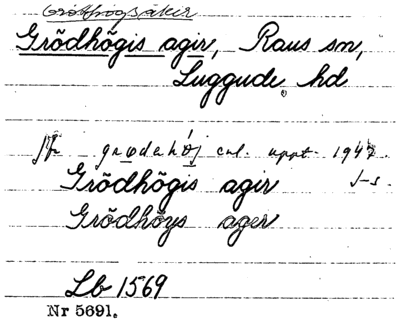 Grödhögsåker
Grõdhõgis agir, Raus sn,
Luggude hd
Jfr grodehöj enl. uppt. 1947.
Grõdhõgis agir J-s.
Grõdhõys ager
Lb 1569
Nr 5691.